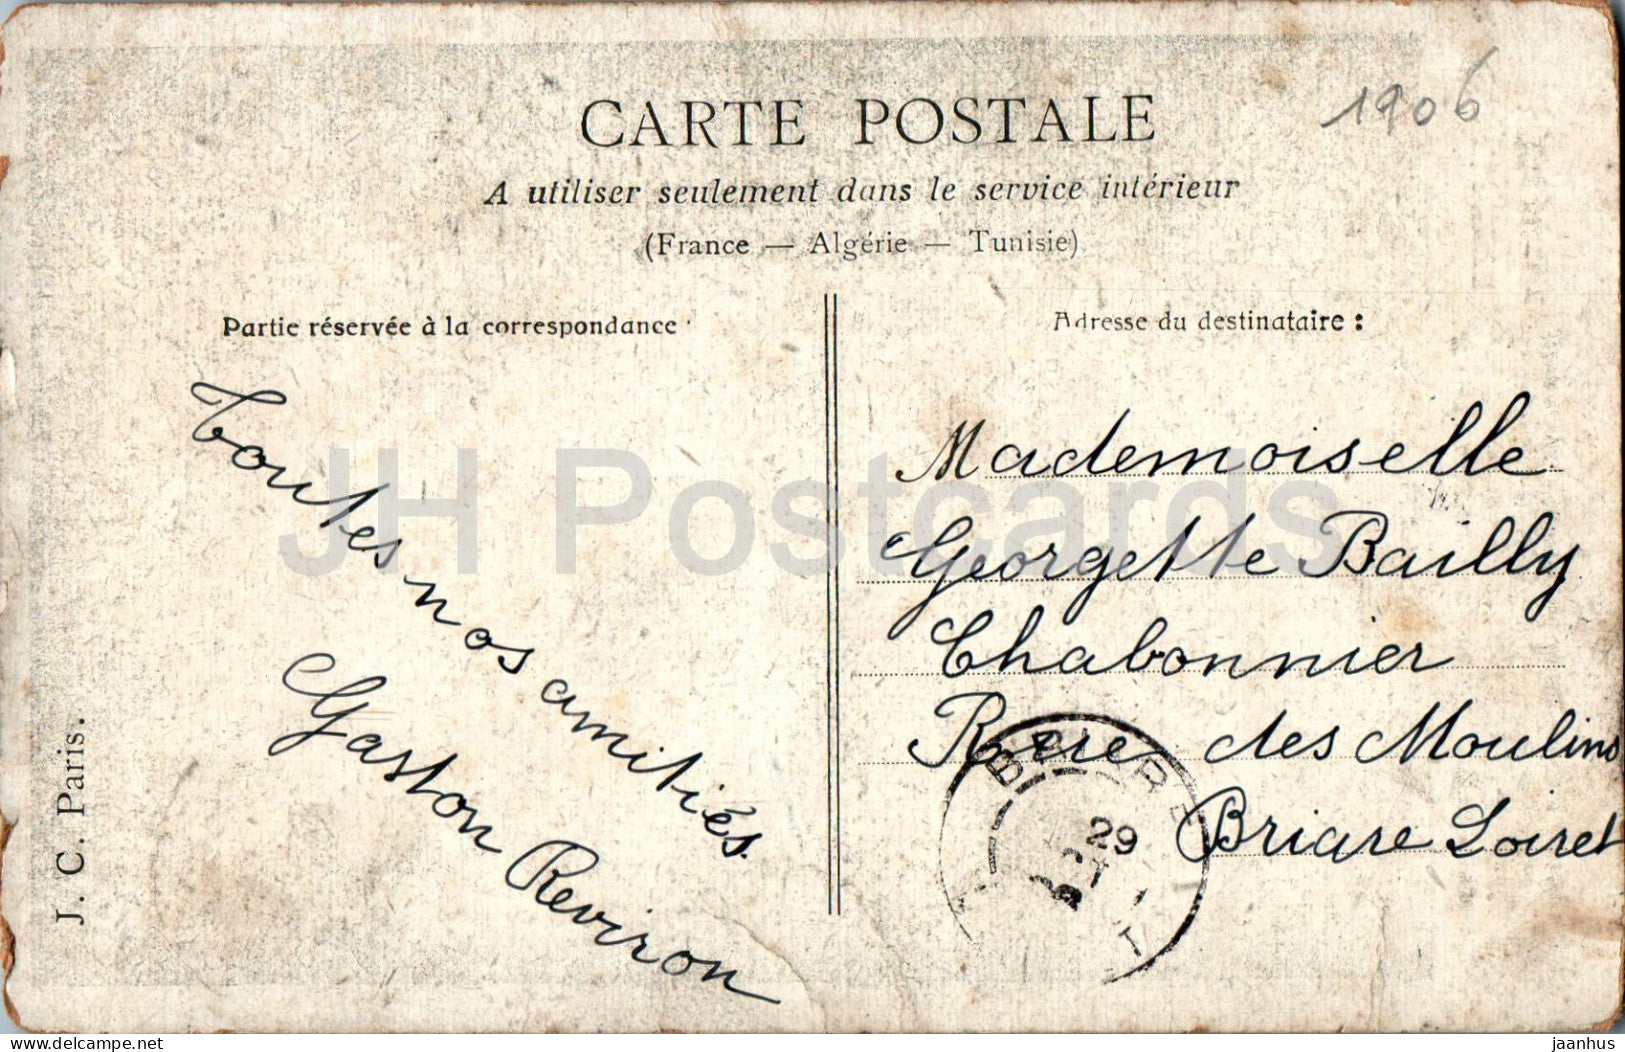 CARTE POSTALE
1906
A utiliser seulement dans le service intérieur
(France — Algérie — Tunisie)
Partie réservée à la correspondance
Adresse du destinataire :
Toutes nos amitiés.
Gaston Reviron
Mademoiselle
Georgette Bailly
Chabonnier
Rue des Moulins
Briare Loiret
BRIARE
29
J. C. Paris.
JH Postcards
delcampe.net
jaanhus